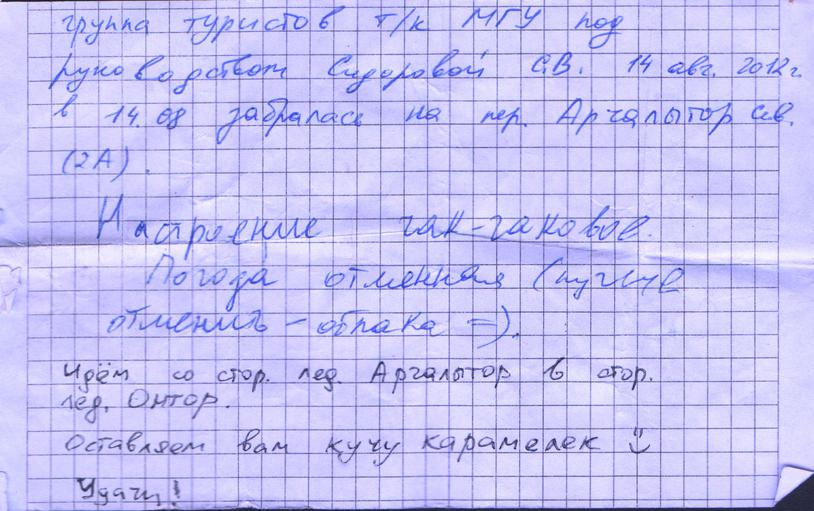 группа туристов т/к МГУ под
руководством Сидоровой С.В. 14 авг. 2012 г.
в 14.08 забралась на пер. Арчалытор Св.
(2А).
Настроение чак-чаковое.
Погода отменная (лучше
отменить - облака =).
Идём со стор. лед. Арчалытор в стор.
лед. Онтор.
Оставляем вам кучу карамелек
Удачи!